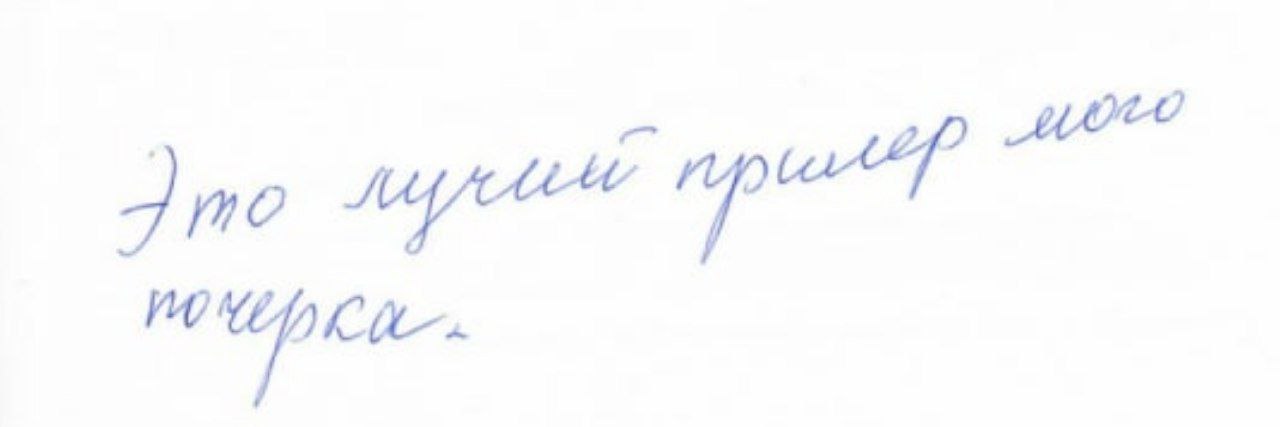 Это лучий пример мого
почерка.